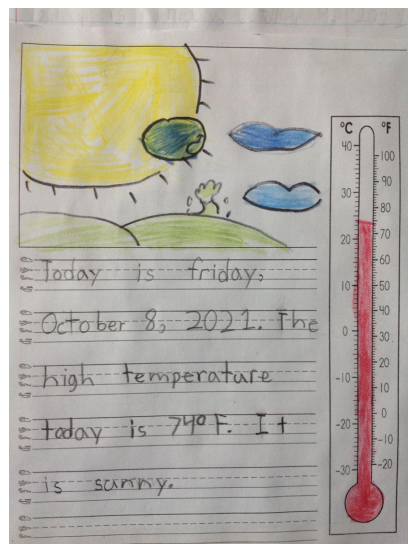 Today is friday,
October 8, 2021. The
high temperature
today is 74° F. It
is sunny.
°C °F
40
30
20
10
0
-10
-20
-30
100
90
80
70
60
50
40
30
20
10
0
-10
-20